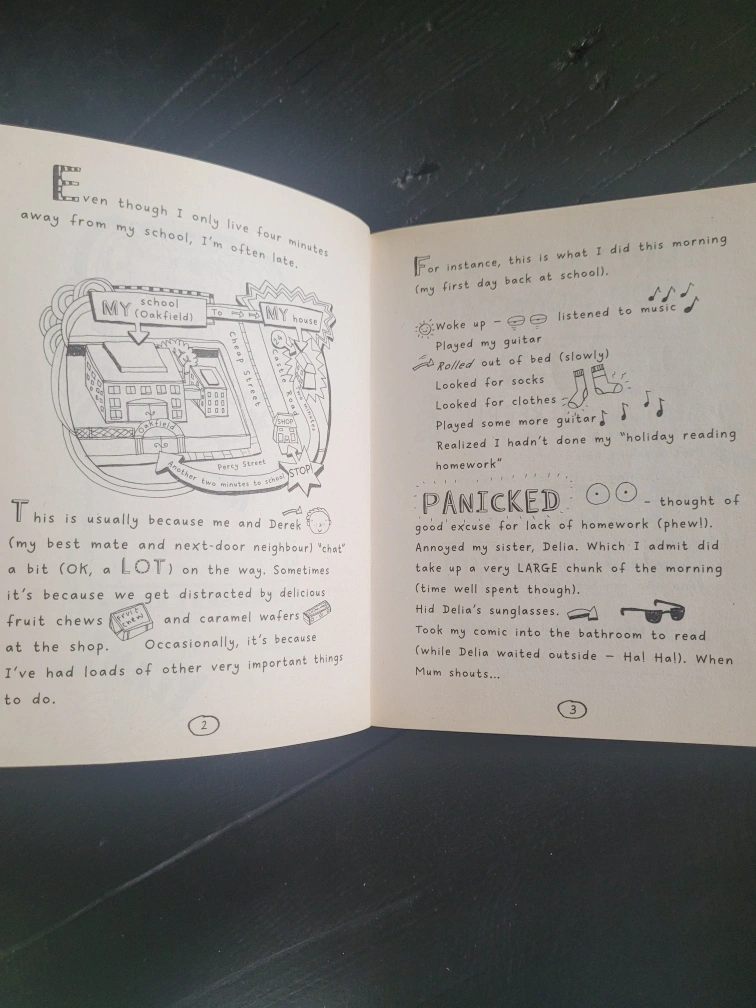 Even though I only live four minutes
away from my school, I'm often late.
MY school
(Oakfield)
To
MY house
Cheap Street
Castle Road
24
SHOP
Oakfield
Percy Street
Another two minutes to school
STOP!
This is usually because me and Derek
(my best mate and next-door neighbour) "chat"
a bit (OK, a LOT) on the way. Sometimes
it's because we get distracted by delicious
fruit chews FRUIT CHEW and caramel wafers
at the shop. Occasionally, it's because
I've had loads of other very important things
to do.
2
For instance, this is what I did this morning
(my first day back at school).
Woke up – listened to music
Played my guitar
Rolled out of bed (slowly)
Looked for socks
Looked for clothes
Played some more guitar
Realized I hadn't done my "holiday reading
homework"
PANICKED – thought of
good excuse for lack of homework (phew!).
Annoyed my sister, Delia. Which I admit did
take up a very LARGE chunk of the morning
(time well spent though).
Hid Delia's sunglasses.
Took my comic into the bathroom to read
(while Delia waited outside – Ha! Ha!). When
Mum shouts...
3